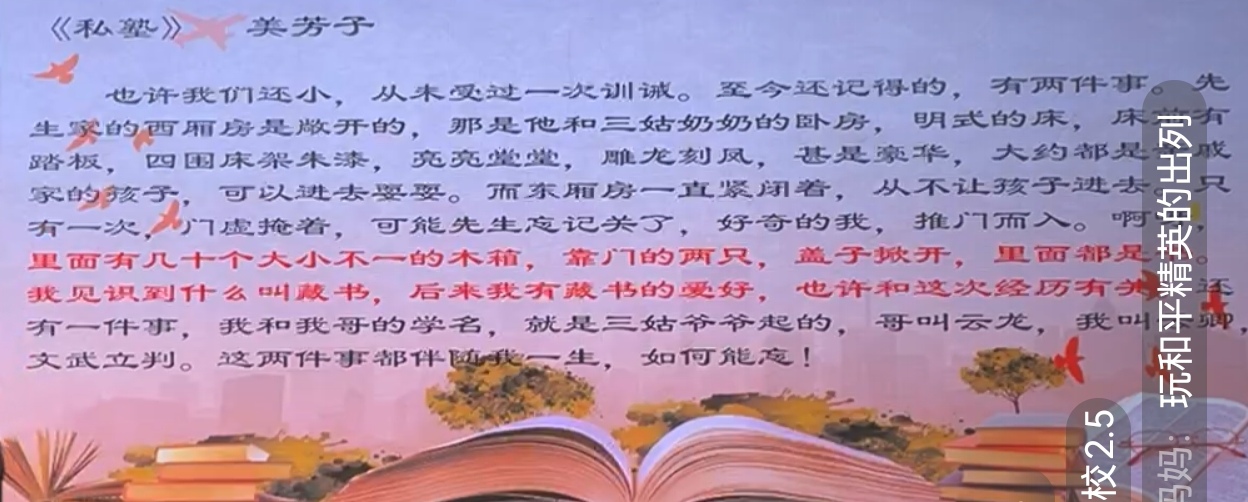 《私塾》 美芳子
也许我们还小，从未受过一次训诫。至今还记得的，有两件事。先
生家的西厢房是敞开的，那是他和三姑奶奶的卧房，明式的床，床前有
踏板，四围床架朱漆，亮亮堂堂，雕龙刻凤，甚是豪华，大约都是戚
家的孩子，可以进去耍耍。而东厢房一直紧闭着，从不让孩子进去。只
有一次，门虚掩着，可能先生忘记关了，好奇的我，推门而入。啊
里面有几十个大小不一的木箱，靠门的两只，盖子掀开，里面都是。
我见识到什么叫藏书，后来我有藏书的爱好，也许和这次经历有关 还
有一件事，我和我哥的学名，就是三姑爷爷起的，哥叫云龙，我叫卿，
文武立判。这两件事都伴随我一生，如何能忘！
玩和平精英的出列
妈：
校2.5